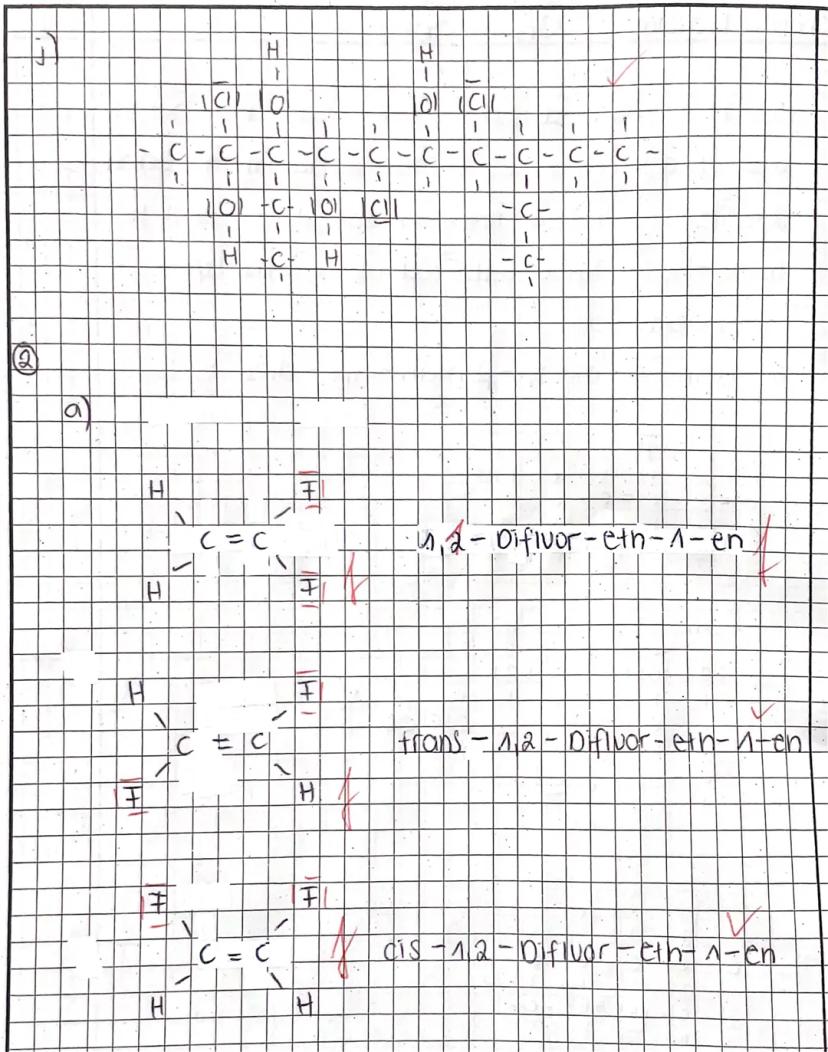 j)
H H
|C̅l| |O |O| |C̅l|
- C - C - C - C - C - C - C - C - C - C -
|O| -C- |O| |C̲l| -C-
H -C- H -C-
②
a)
H F
C = C 1,2 - Difluor - eth - 1 - en f
H F f
H F
C = C trans - 1,2 - Difluor - eth - 1 - en
F H f
F F
C = C f cis - 1,2 - Difluor - eth - 1 - en
H H